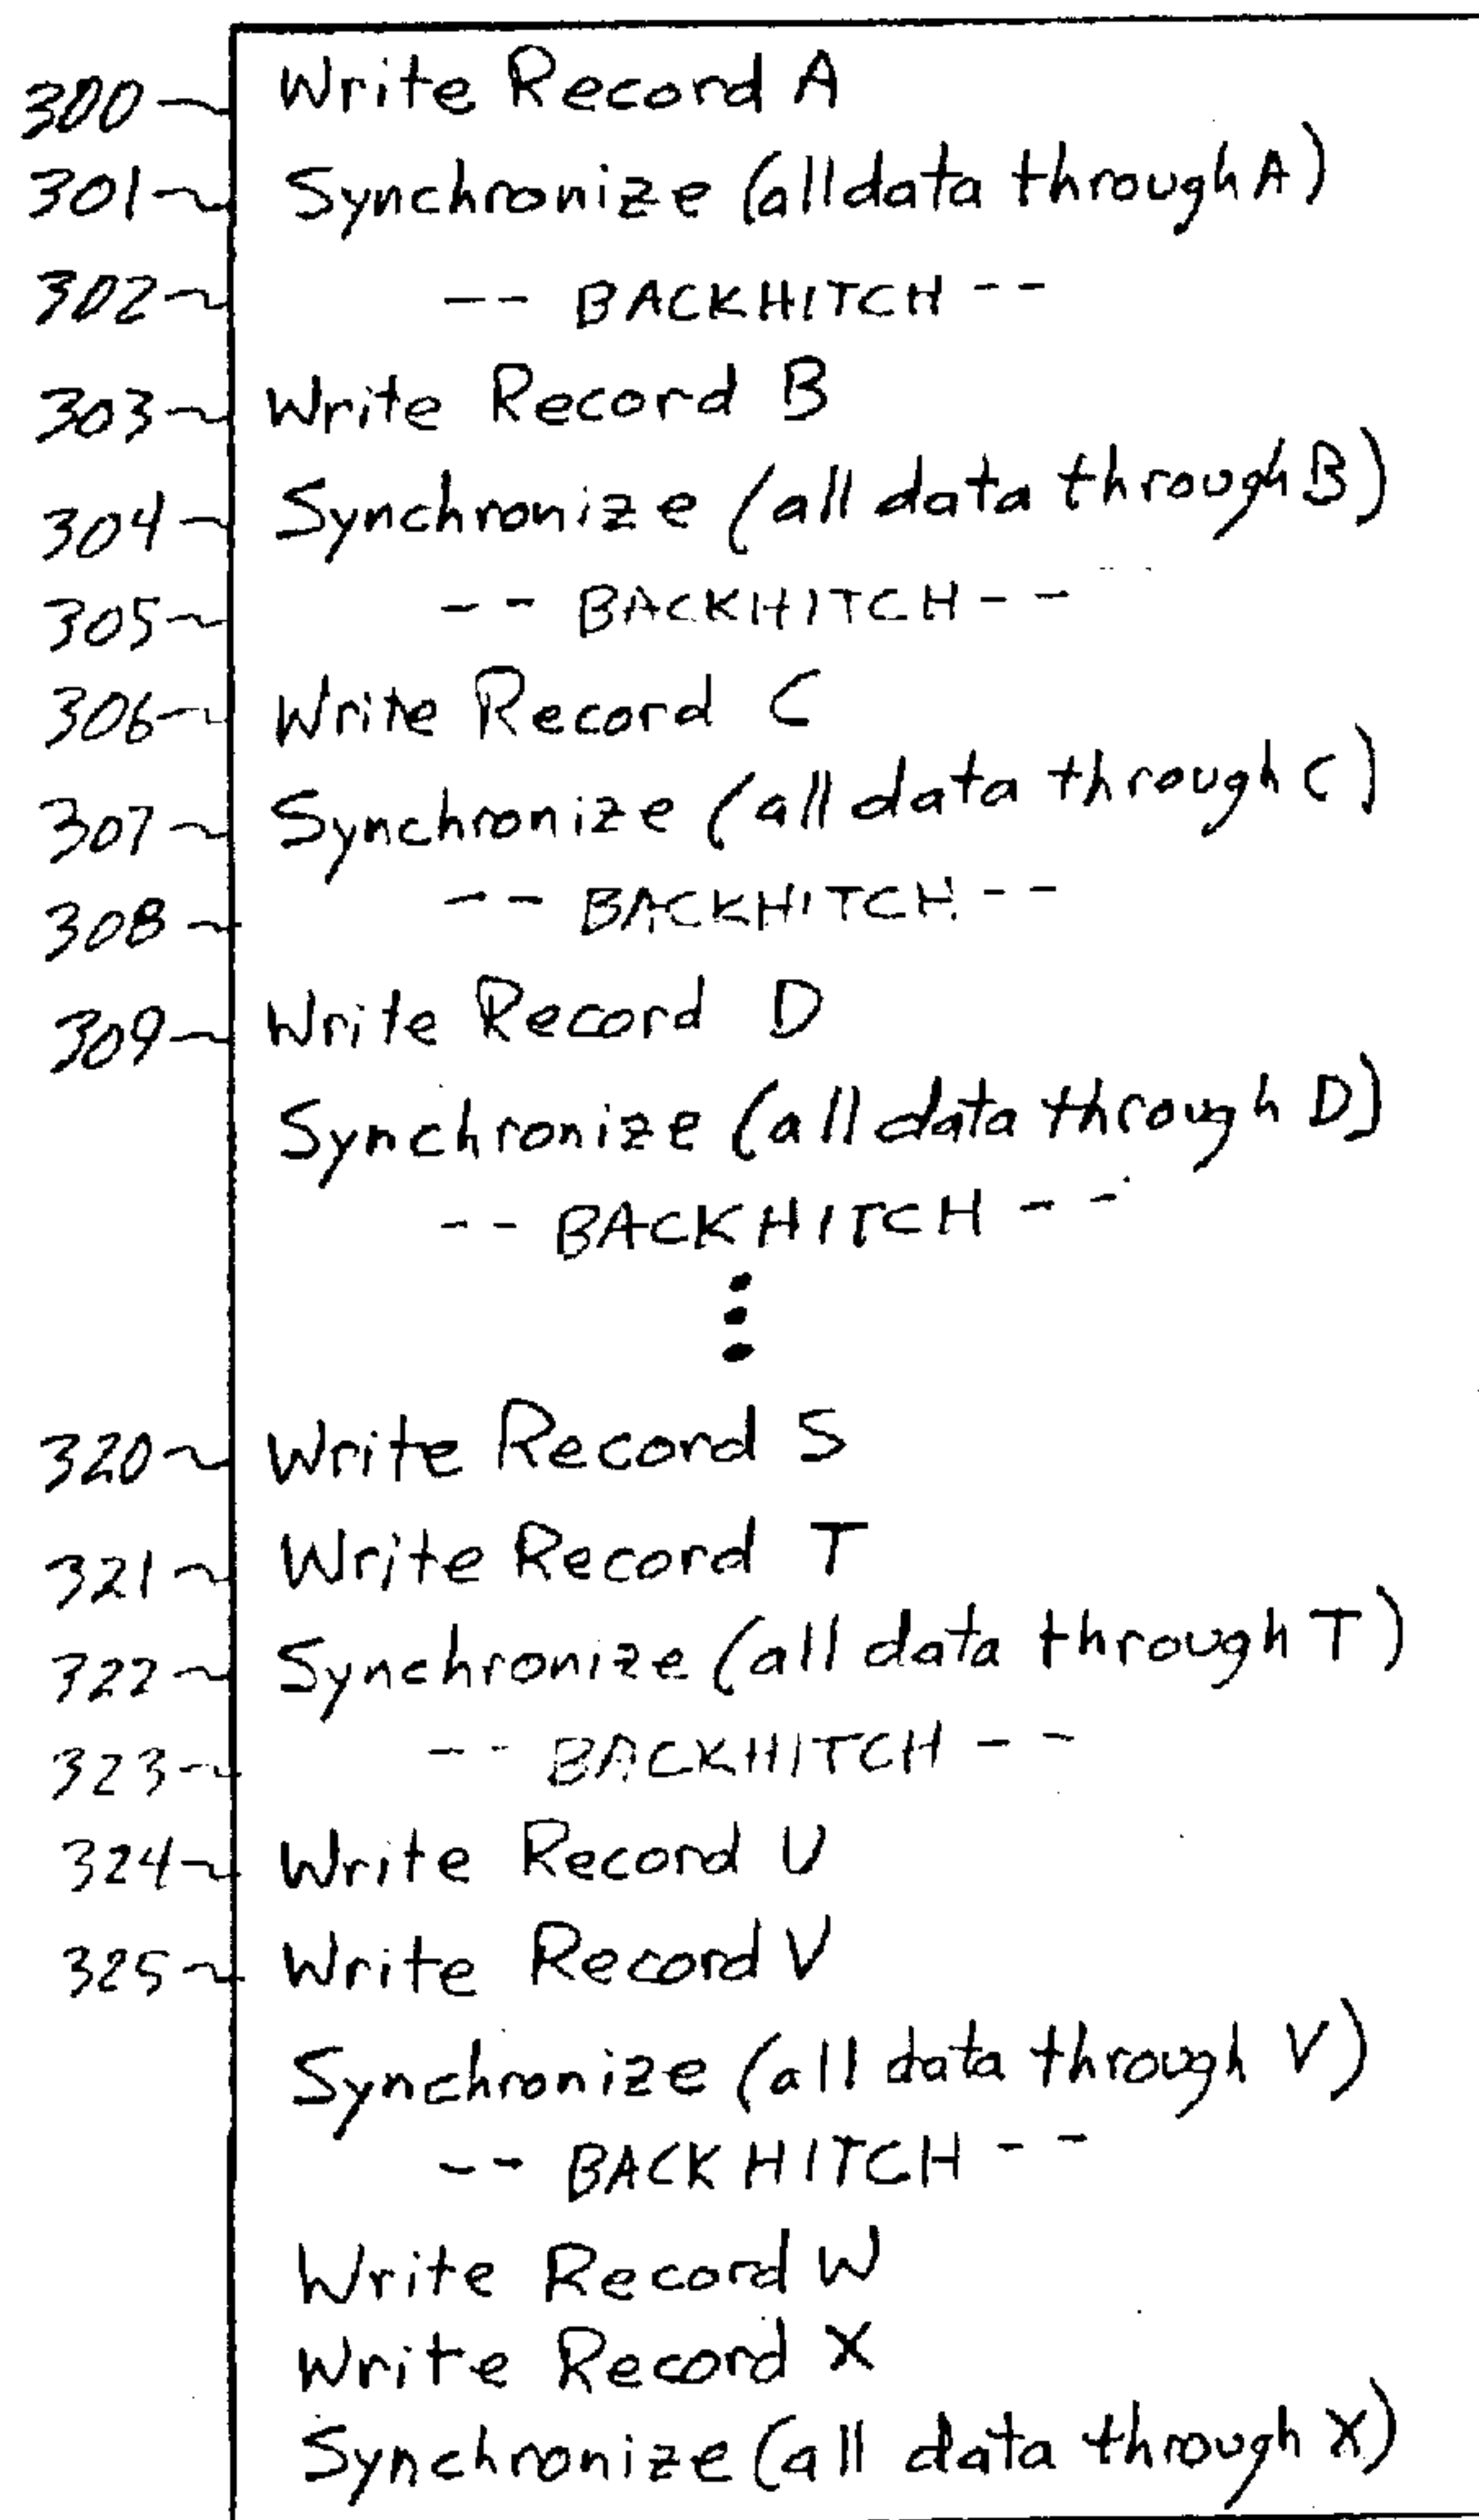 300 Write Record A
301 Synchronize (all data through A)
302 -- BACKHITCH --
303 Write Record B
304 Synchronize (all data through B)
305 -- BACKHITCH --
306 Write Record C
307 Synchronize (all data through C)
308 -- BACKHITCH --
309 Write Record D
Synchronize (all data through D)
-- BACKHITCH --
⋮
320 Write Record S
321 Write Record T
322 Synchronize (all data through T)
323 -- BACKHITCH --
324 Write Record U
325 Write Record V
Synchronize (all data through V)
-- BACKHITCH --
Write Record W
Write Record X
Synchronize (all data through X)